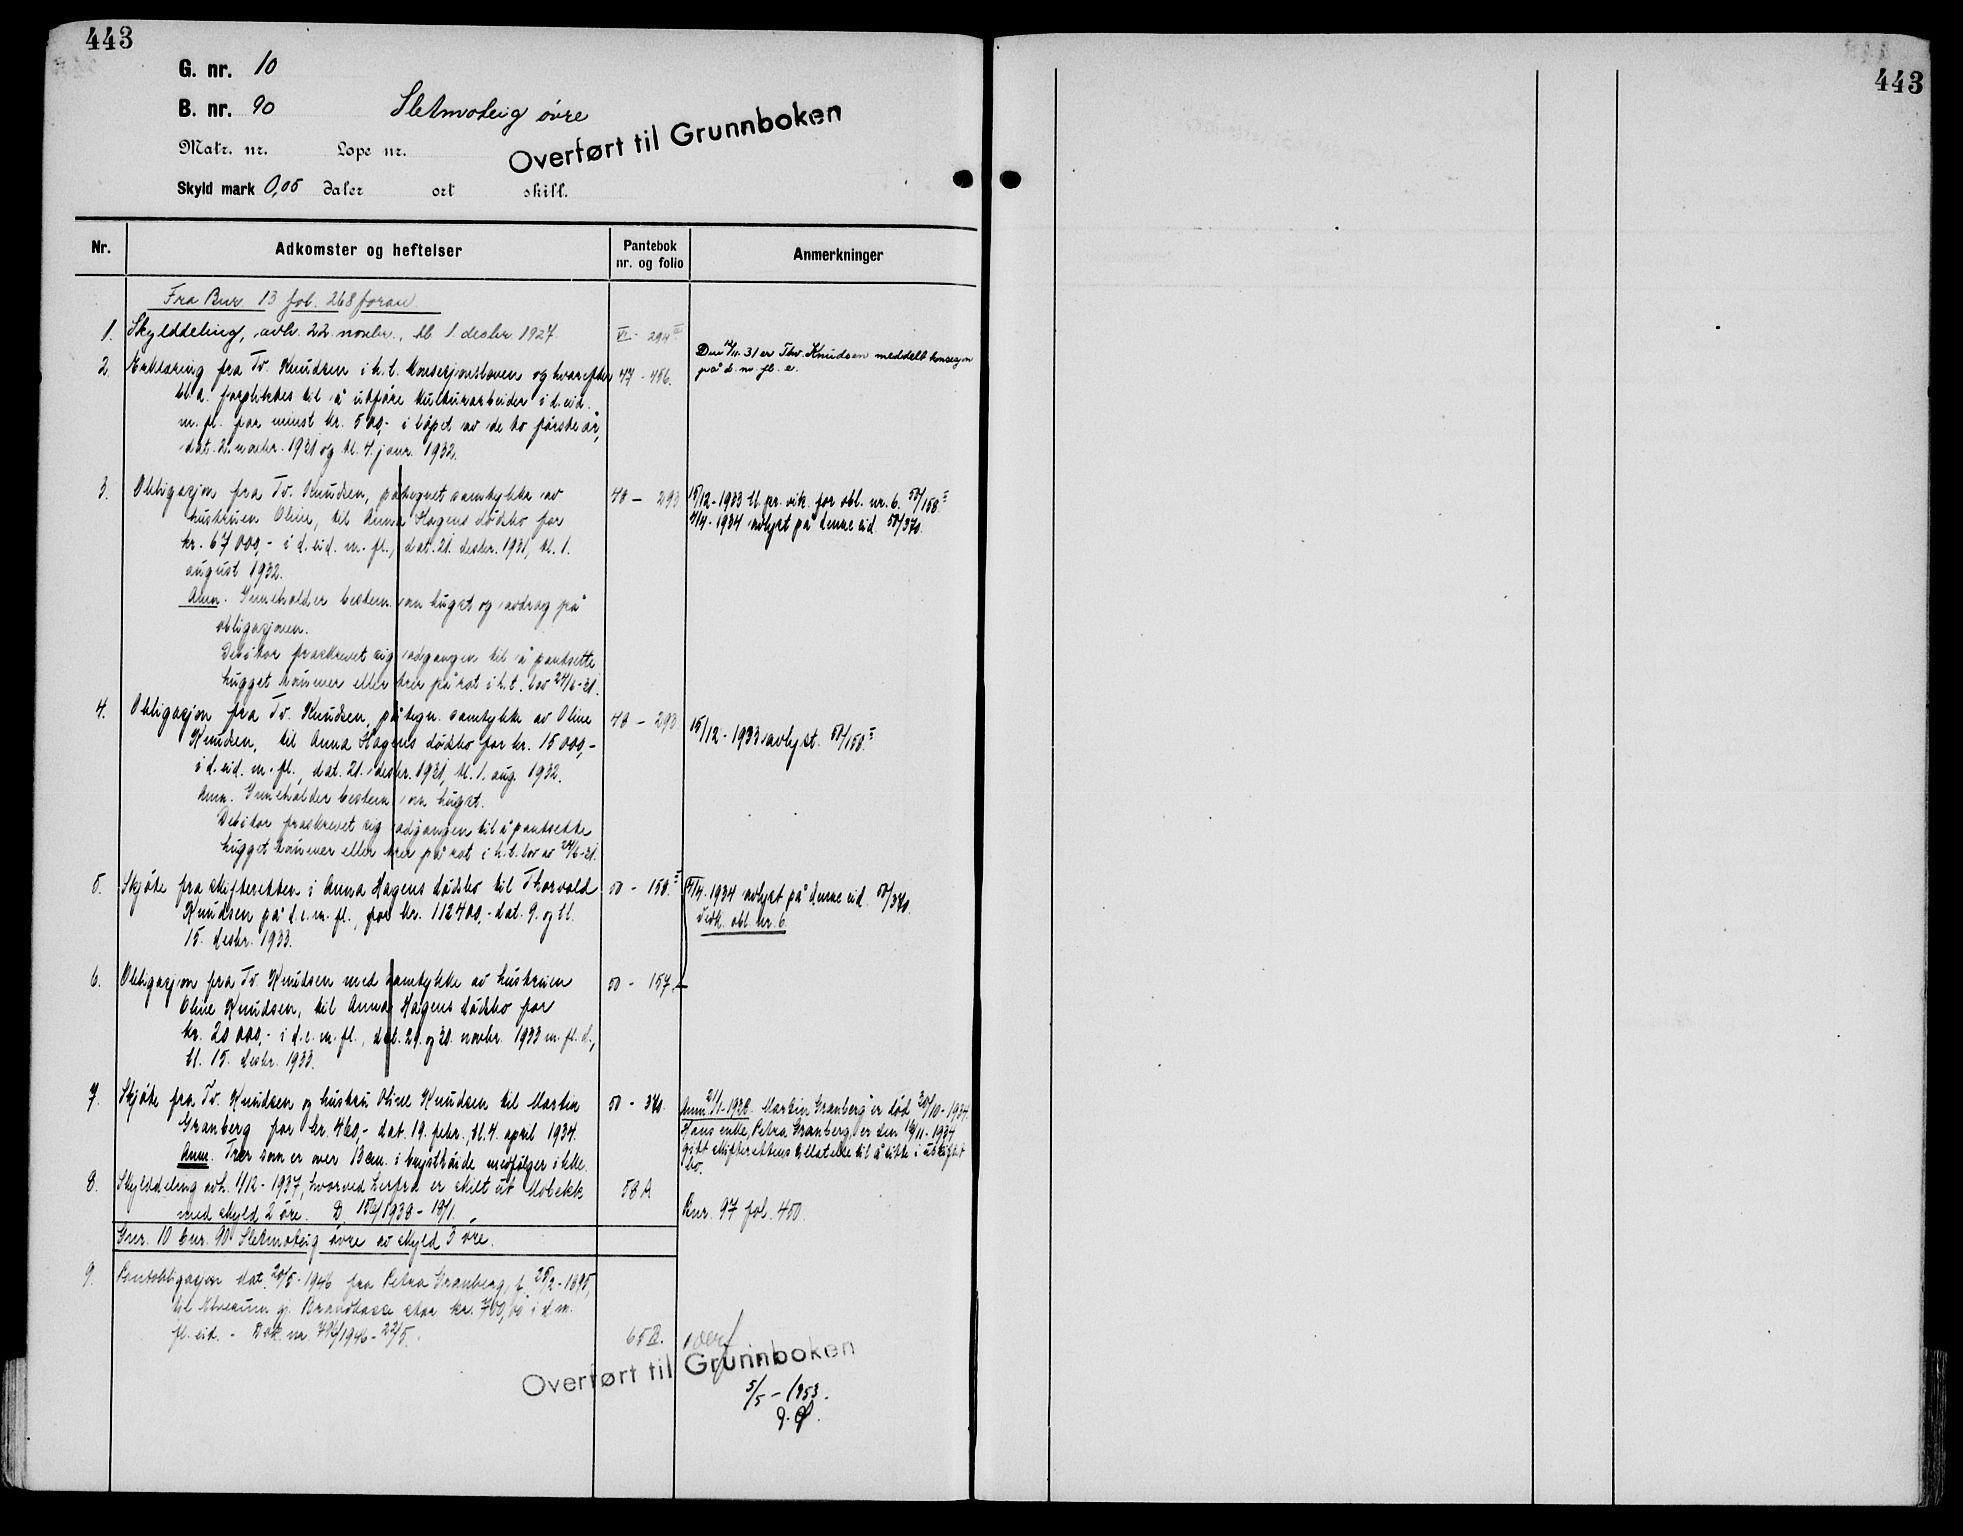 443
443
G. nr. 10
B. nr. 90 Sletmoteig øvre
Overført til Grunnboken
Matr. nr. Løpe nr.
Skyld mark 0,05 daler ort skill.
Nr. Adkomster og heftelser Pantebok nr. og folio Anmerkninger
Fra Bnr. 13 fol. 268 foran
1. Skylddeling, avh. 22. novbr., tl. 1. desbr. 1927. VI - 294
2. Erklæring fra Tv. Knudsen i h.t. konsesjonsloven og hvorefter 47 - 456.
bl.a. forpliktes til å utføre kulturarbeider i d. eid.
m. fl. for minst kr. 500,- i løpet av de to første år,
dat. 2. novbr. 1931 og tl. 4. janr. 1932.
Den 14/11. 31 er Thv. Knudsen meddelt konsesjon
på d. m. fl. e.
3. Obligasjon fra Tv. Knudsen, påtegnet samtykke av 48 - 293
hustruen Oline, til Anna Hagens dødsbo for
kr. 67 000,- i d. eid. m. fl., dat. 21. desbr. 1931, tl. 1.
august 1932.
15/12 - 1933 tl. pr. vik. for obl. nr. 6. 50/158.
4/4 - 1934 avlyst på denne eid. 50/340.
Anm. Inneholder bestem. om hugst og avdrag på
obligasjonen.
Debitor fraskrevet sig adgangen til å pantsette
hugget tømmer eller trær på rot i h.t. lov 24/6-31.
4. Obligasjon fra Tv. Knudsen, påtegn. samtykke av Oline 48 - 293
Knudsen, til Anna Hagens dødsbo for kr. 15 000,-
i d. eid. m. fl., dat. 21. desbr. 1931, tl. 1. aug. 1932.
15/12 - 1933 avlyst. 50/158.
Anm. Inneholder bestem. om hugst.
Debitor fraskrevet sig adgangen til å pantsette
hugget tømmer eller trær på rot i h.t. lov av 24/6-31.
5. Skjøte fra skifteretten i Anna Hagens dødsbo til Thorvald 50 - 158.
Knudsen på d. e. m. fl., for kr. 112400,- dat. 9. og tl.
15. desbr. 1933.
4/4 - 1934 avlyst på denne eid. 50/340.
Vedk. obl. nr. 6.
6. Obligasjon fra Tv. Knudsen med samtykke av hustruen 50 - 157.
Oline Knudsen, til Anna Hagens dødsbo for
kr. 20 000,- i d. e. m. fl., dat. 29. og 30. novbr. 1933 m. fl. d.,
tl. 15. desbr. 1933.
7. Skjøte fra Tv. Knudsen og hustru Oline Knudsen til Martin 50 - 340.
Granberg for kr. 460,- dat. 19. febr., tl. 4. april 1934.
Anm. Trær som er over 13 cm. i brysthøide medfølger ikke.
Anm 21/1-1938. Martin Granberg er død 30/10 - 1937.
Hans enke, Petra Granberg, er den 16/11 - 1937
gitt skifterettens tillatelse til å sitte i uskiftet
bo.
8. Skylddeling avh. 1/12 - 1937, hvorved herfra er skilt ut Mobekk 58 A
med skyld 2 øre. D. 156/1938 - 19/1. Bnr. 97 fol. 450.
Gnr. 10 bnr. 90 Sletmoteig øvre av skyld 3 øre.
9. Pantobligasjon dat. 20/5 - 1946 fra Petra Granberg, f. 25/2 - 1895,
til Elverum gj. Brandkasse stor kr. 700,00 i d. m.
fl. eid. - Dok. nr. /1946 - 22/5. 65 B. overf
Overført til Grunnboken
5/5 - 1953.